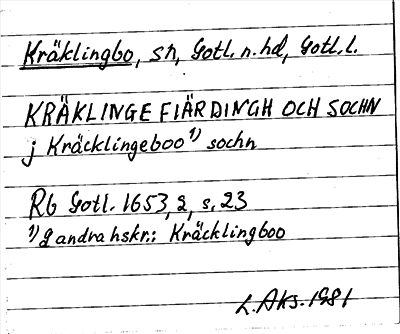 Kräklingbo, sn, Gotl. n. hd, Gotl. l.
KRÄKLINGE FIÄRDINGH OCH SOCHN
j Kräcklingeboo¹⁾ sochn
Rb Gotl. 1653, 2, s. 23
¹⁾ 2 andra hskr.: Kräcklingboo
L. Aks. 1981